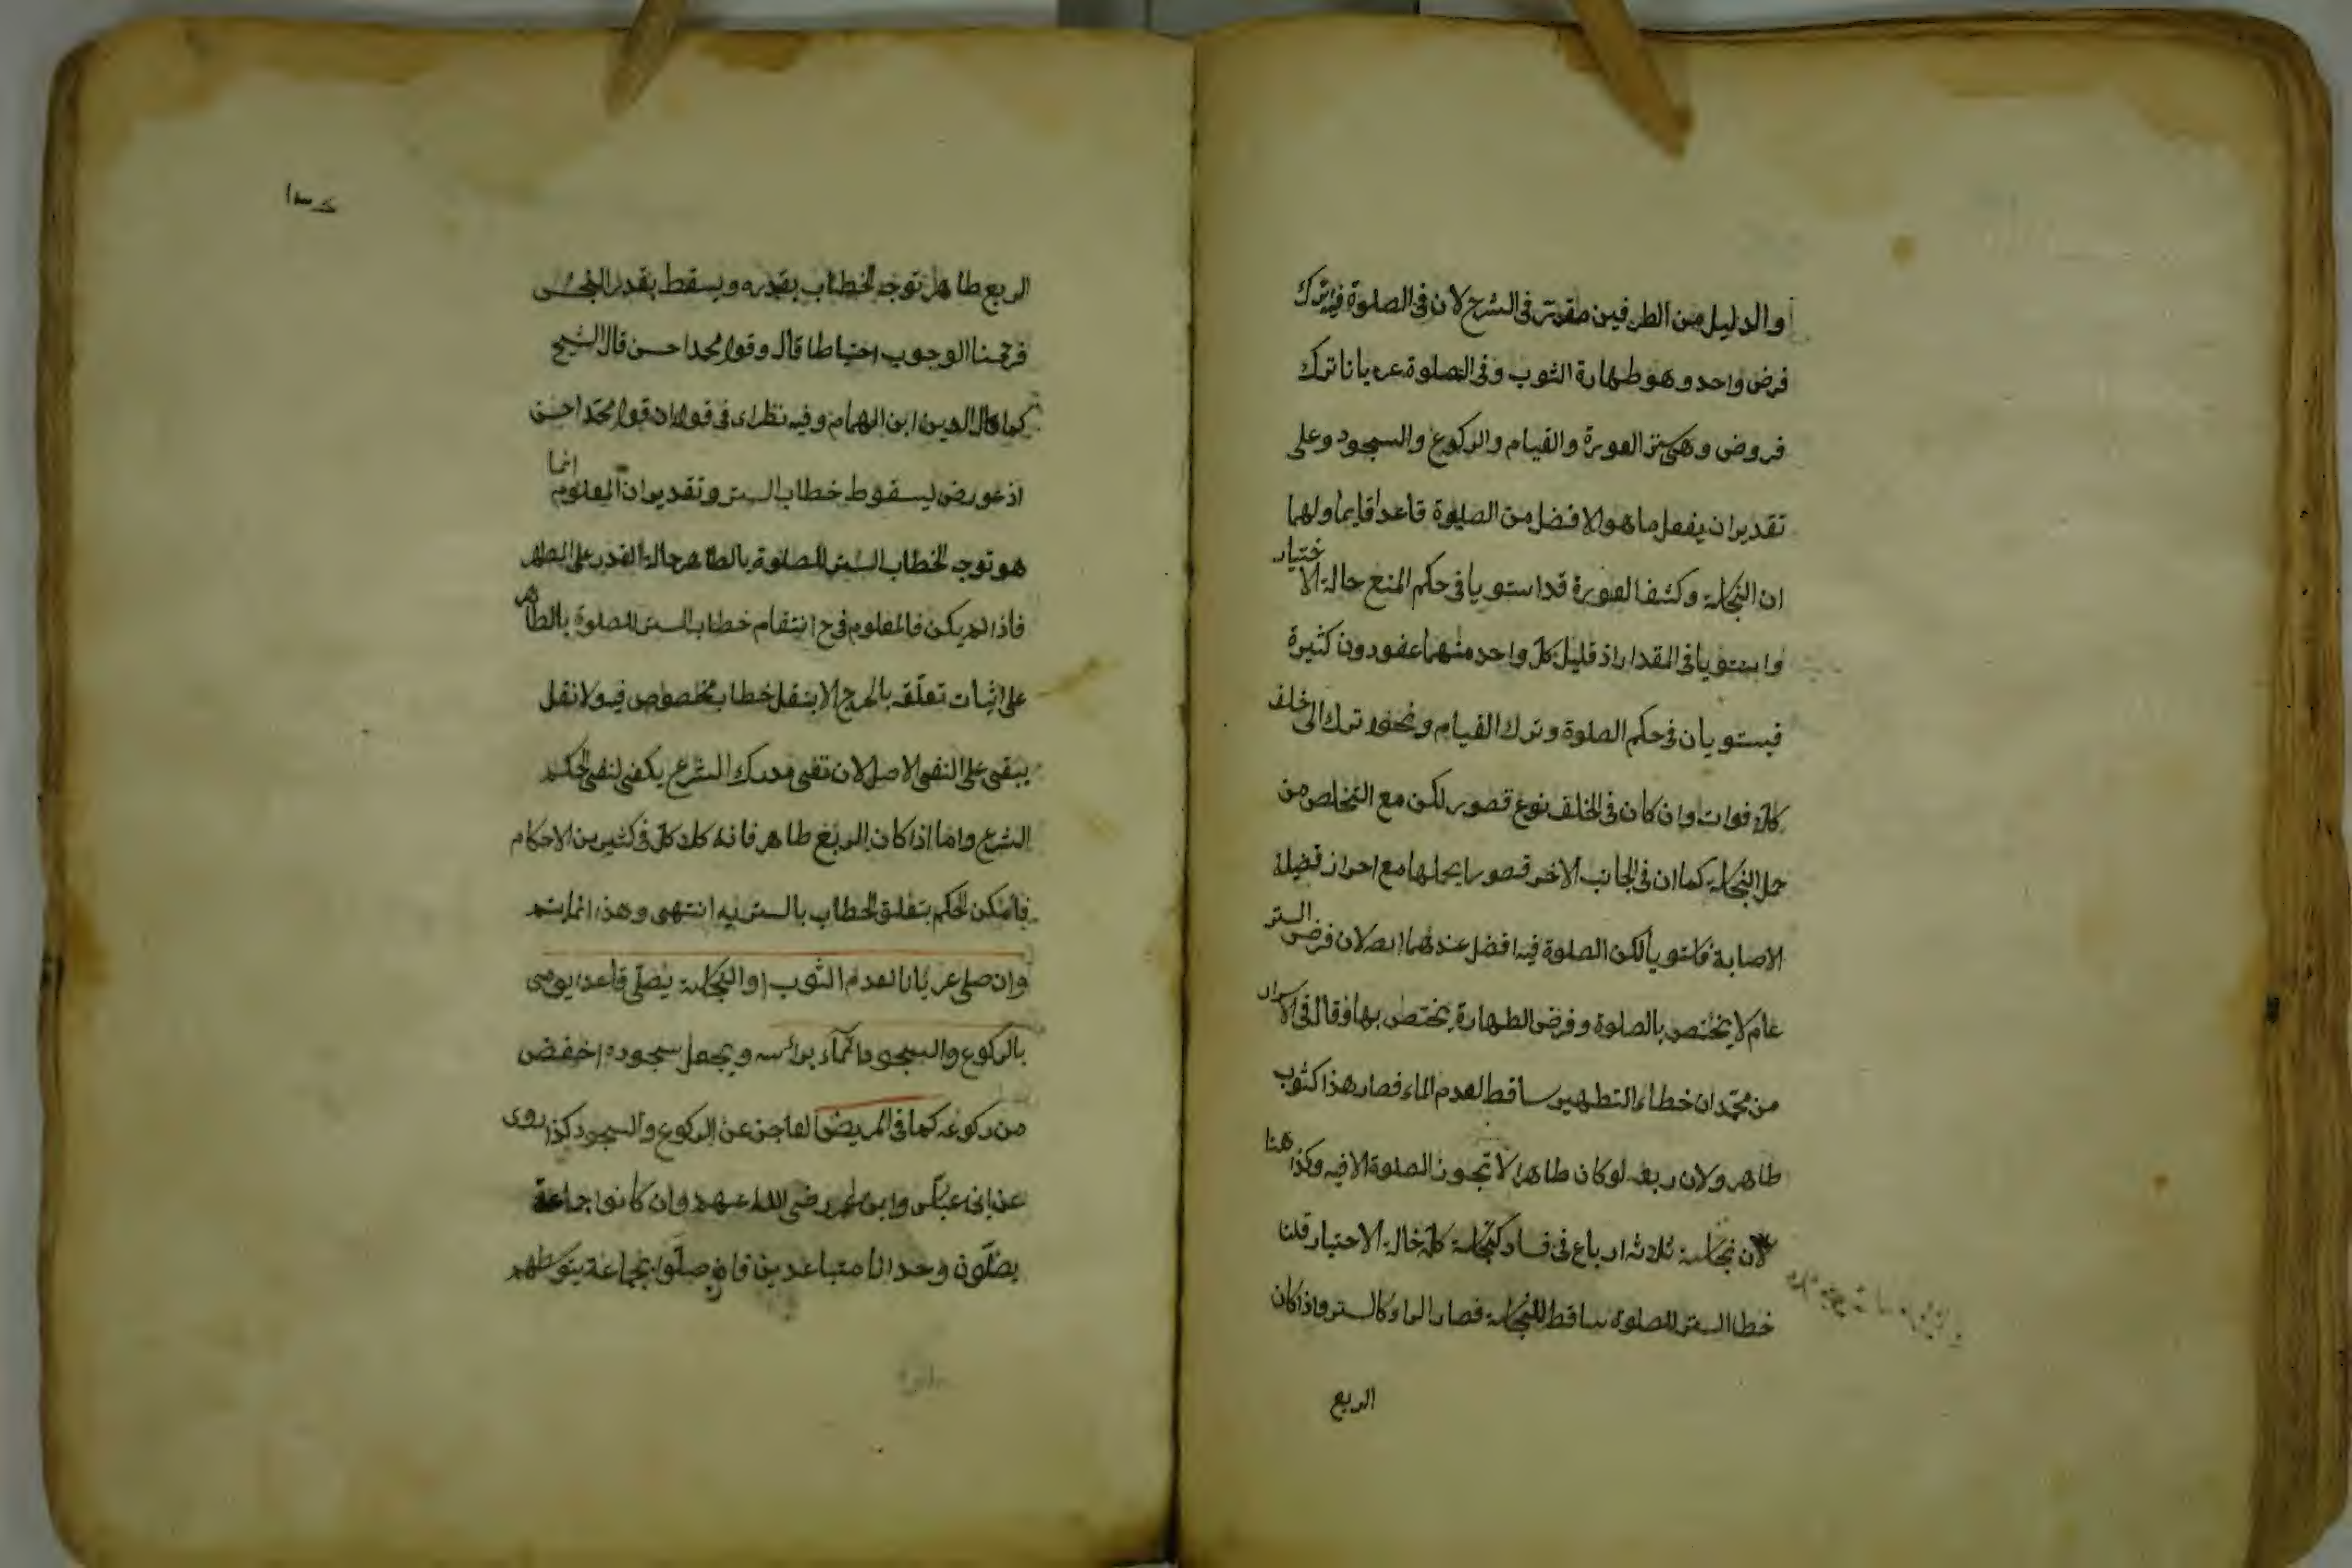 والدليل من الطرفين مقرر في الشرح لان في الصلوة فيه ترك
فرض واحد وهو طهارة الثوب وفي الصلوة عريانا ترك
فروض وهي ستر العورة والقيام والركوع والسجود وعلى
تقدير ان يفعل ما هو الافضل من الصلوة قاعدا قايما ولهما
ان النجاسة وكشف العورة قد استويا في حكم المنع حالة الاختيار
واستويا في المقدار اذ قليل كل واحد منهما عفو دون كثيرة
فيستويان في حكم الصلوة وترك القيام ونحوه ترك الى خلف
كلا فوات وان كان في الخلف نوع قصور لكن مع التخلص من
حمل النجاسة كما ان في الجانب الاخر قصورا بحملها مع احراز فضيلة
الاصابة فاستويا لكن الصلوة فيه افضل عندهما لان فرض الستر
عام لا يختص بالصلوة وفرض الطهارة يختص بها وقال في الاسرار
من محمد ان خطاب التطهير ساقط لعدم الماء فصار هذا كثوب
طاهر ولان ربعه لو كان طاهرا لا تجوز الصلوة الا فيه وكذا هنا
لان نجاسة ثلاثة ارباع في فساد كنجاسة كله حالة الاختيار قلنا
خطاب الستر للصلوة ساقط للنجاسة فصار الماء كالستر واذا كان
الربع
الربع طاهر توجه الخطاب بقدره ويسقط بقدر النجس
فرجحنا الوجوب احتياطا قال وقول محمد احسن قال الشيخ
كمال الدين ابن الهمام وفيه نظر اى في قوله ان قول محمد احسن
اذ عورض بسقوط خطاب الستر وتقديره ان المعلوم انما
هو توجه الخطاب الستر للصلوة بالطاهر حالة القدر على الطهر
فاذا لم يكن فالمعلوم في ح انتقام خطاب الستر للصلوة بالطاهر
على اثبات تعلقه بالحرج الا بنقل خطاب مخصوص فيه ولا نقل
يبقى على النفى الاصل لان نفى مدرك الشرع يكفى لنفى الحكم
الشرع واما اذا كان الربع طاهر فانه كلد كل في كثير من الاحكام
فامكن الحكم بتعلق الخطاب بالستر فيه انتهى وهذا انما يتم
وان صلى عريانا لعدم الثوب او النجاسة يصلى قاعدا يومى
بالركوع والسجود ايماء برأسه ويجعل سجوده اخفض
من ركوعه كما في المريض العاجز عن الركوع والسجود كذا روى
عن ابن عباس وابن عمر رضى الله عنهم وان كانوا جماعة
يصلون وحدانا متباعدين فان صلوا بجماعة يتوسطهم